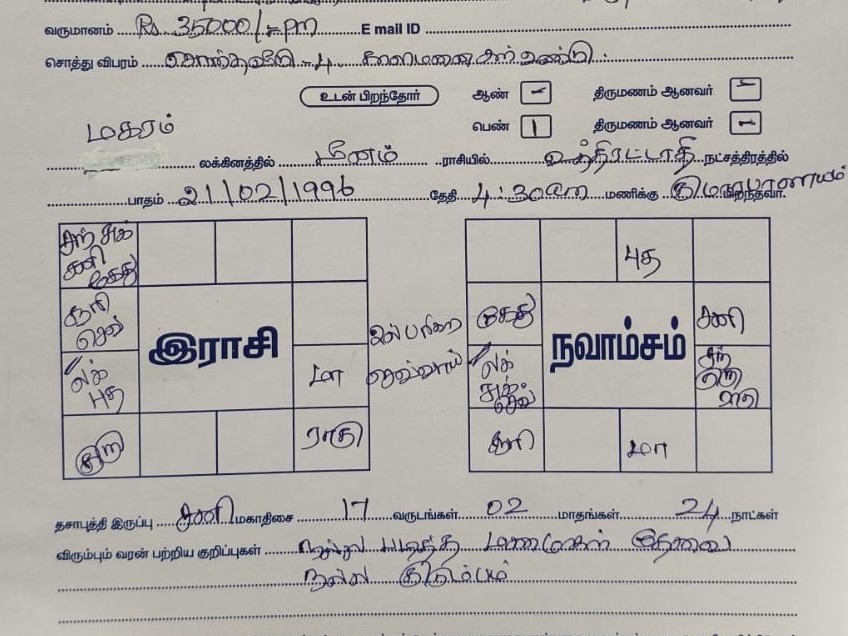 வருமானம் Rs. 35000/= pm E mail ID
சொத்து விபரம் சொந்தவீடு - 4 காலைமனைகள் உண்டு.
உடன் பிறந்தோர் ஆண் - திருமணம் ஆனவர் -
பெண் 1 திருமணம் ஆனவர் -
மகரம் லக்கினத்தில் மீனம் ராசியில் உத்திரட்டாதி நட்சத்திரத்தில்
பாதம் 21/02/1996 தேதி 4:30 am மணிக்கு பிறந்தவர்.
சந் சுக் சனி கேது
சூரி செவ்
இராசி
லக் புத
மா
குரு
ராகு
இல் பரிகார செவ்வாய்
புத
கேது
நவாம்சம்
சனி
லக் சுக் செவ்
சந் குரு ராகு
சூரி
மா
தசாபுத்தி இருப்பு சனி மகாதிசை 17 வருடங்கள் 02 மாதங்கள் 24 நாட்கள்
விரும்பும் வரன் பற்றிய குறிப்புகள் நல்ல படித்த மணமகள் தேவை
நல்ல குடும்பம்